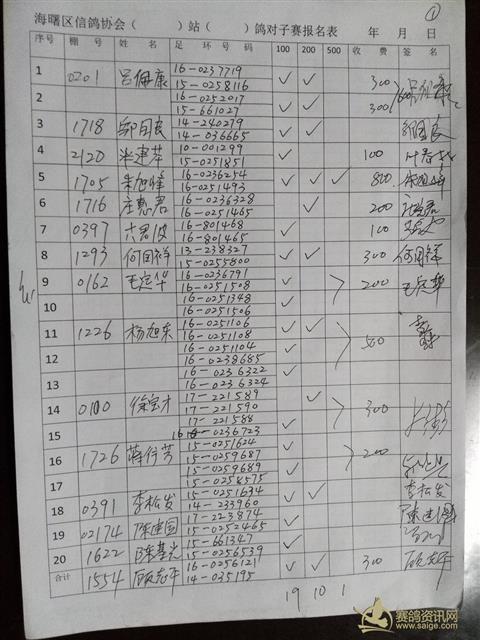 ①
海曙区信鸽协会（ ）站（ ）鸽对子赛报名表 年 月 日
序号 棚号 姓名 足环号码 100 200 500 收费 签名
1 0201 吕佩康 16-0237719 ✓ ✓ 300
15-0258116
2 16-0252017 ✓ ✓ 300
15-661027
3 1718 邬国良 14-240279 ✓ ✓
14-036665
4 2120 10-001299 ✓ 100
15-0251851
5 1705 朱旭峰 16-0236254 ✓ ✓ ✓ 800
16-0251493
6 1716 庄惠君 16-0236328 ✓ 200
16-0251465
7 0397 16-801468 ✓ 100
16-801465
8 1293 何国祥 13-238327 ✓ ✓ 300 何国祥
15-0255800
9 0162 毛定华 16-0236791 ✓ 200 毛定华
16-0251508
10 16-0251348 ✓
16-0251506
11 1226 杨旭东 16-0251106 ✓ ✓
16-0251108
12 16-0251104 ✓ 500
16-0238685
13 16-0236322 ✓
16-0236324
14 0100 徐宝才 17-221589 ✓ 300
17-221590
15 17-221588 ✓
16-0236723
16 1726 蒋行芳 15-0251624 ✓ 200
15-0259687
17 15-0259689 ✓
15-0258575
18 0391 李松发 15-0251634 ✓ ✓ 李松发
14-233960
19 02174 陈建国 17-223874 ✓ 陈建国
15-0252465
20 1622 陈基光 15-661347 ✓
15-0256539
合计 1554 顾志平 16-0256121 ✓ ✓ 300 顾志平
14-035195
19 10 1
赛鸽资讯网
www.saige.com